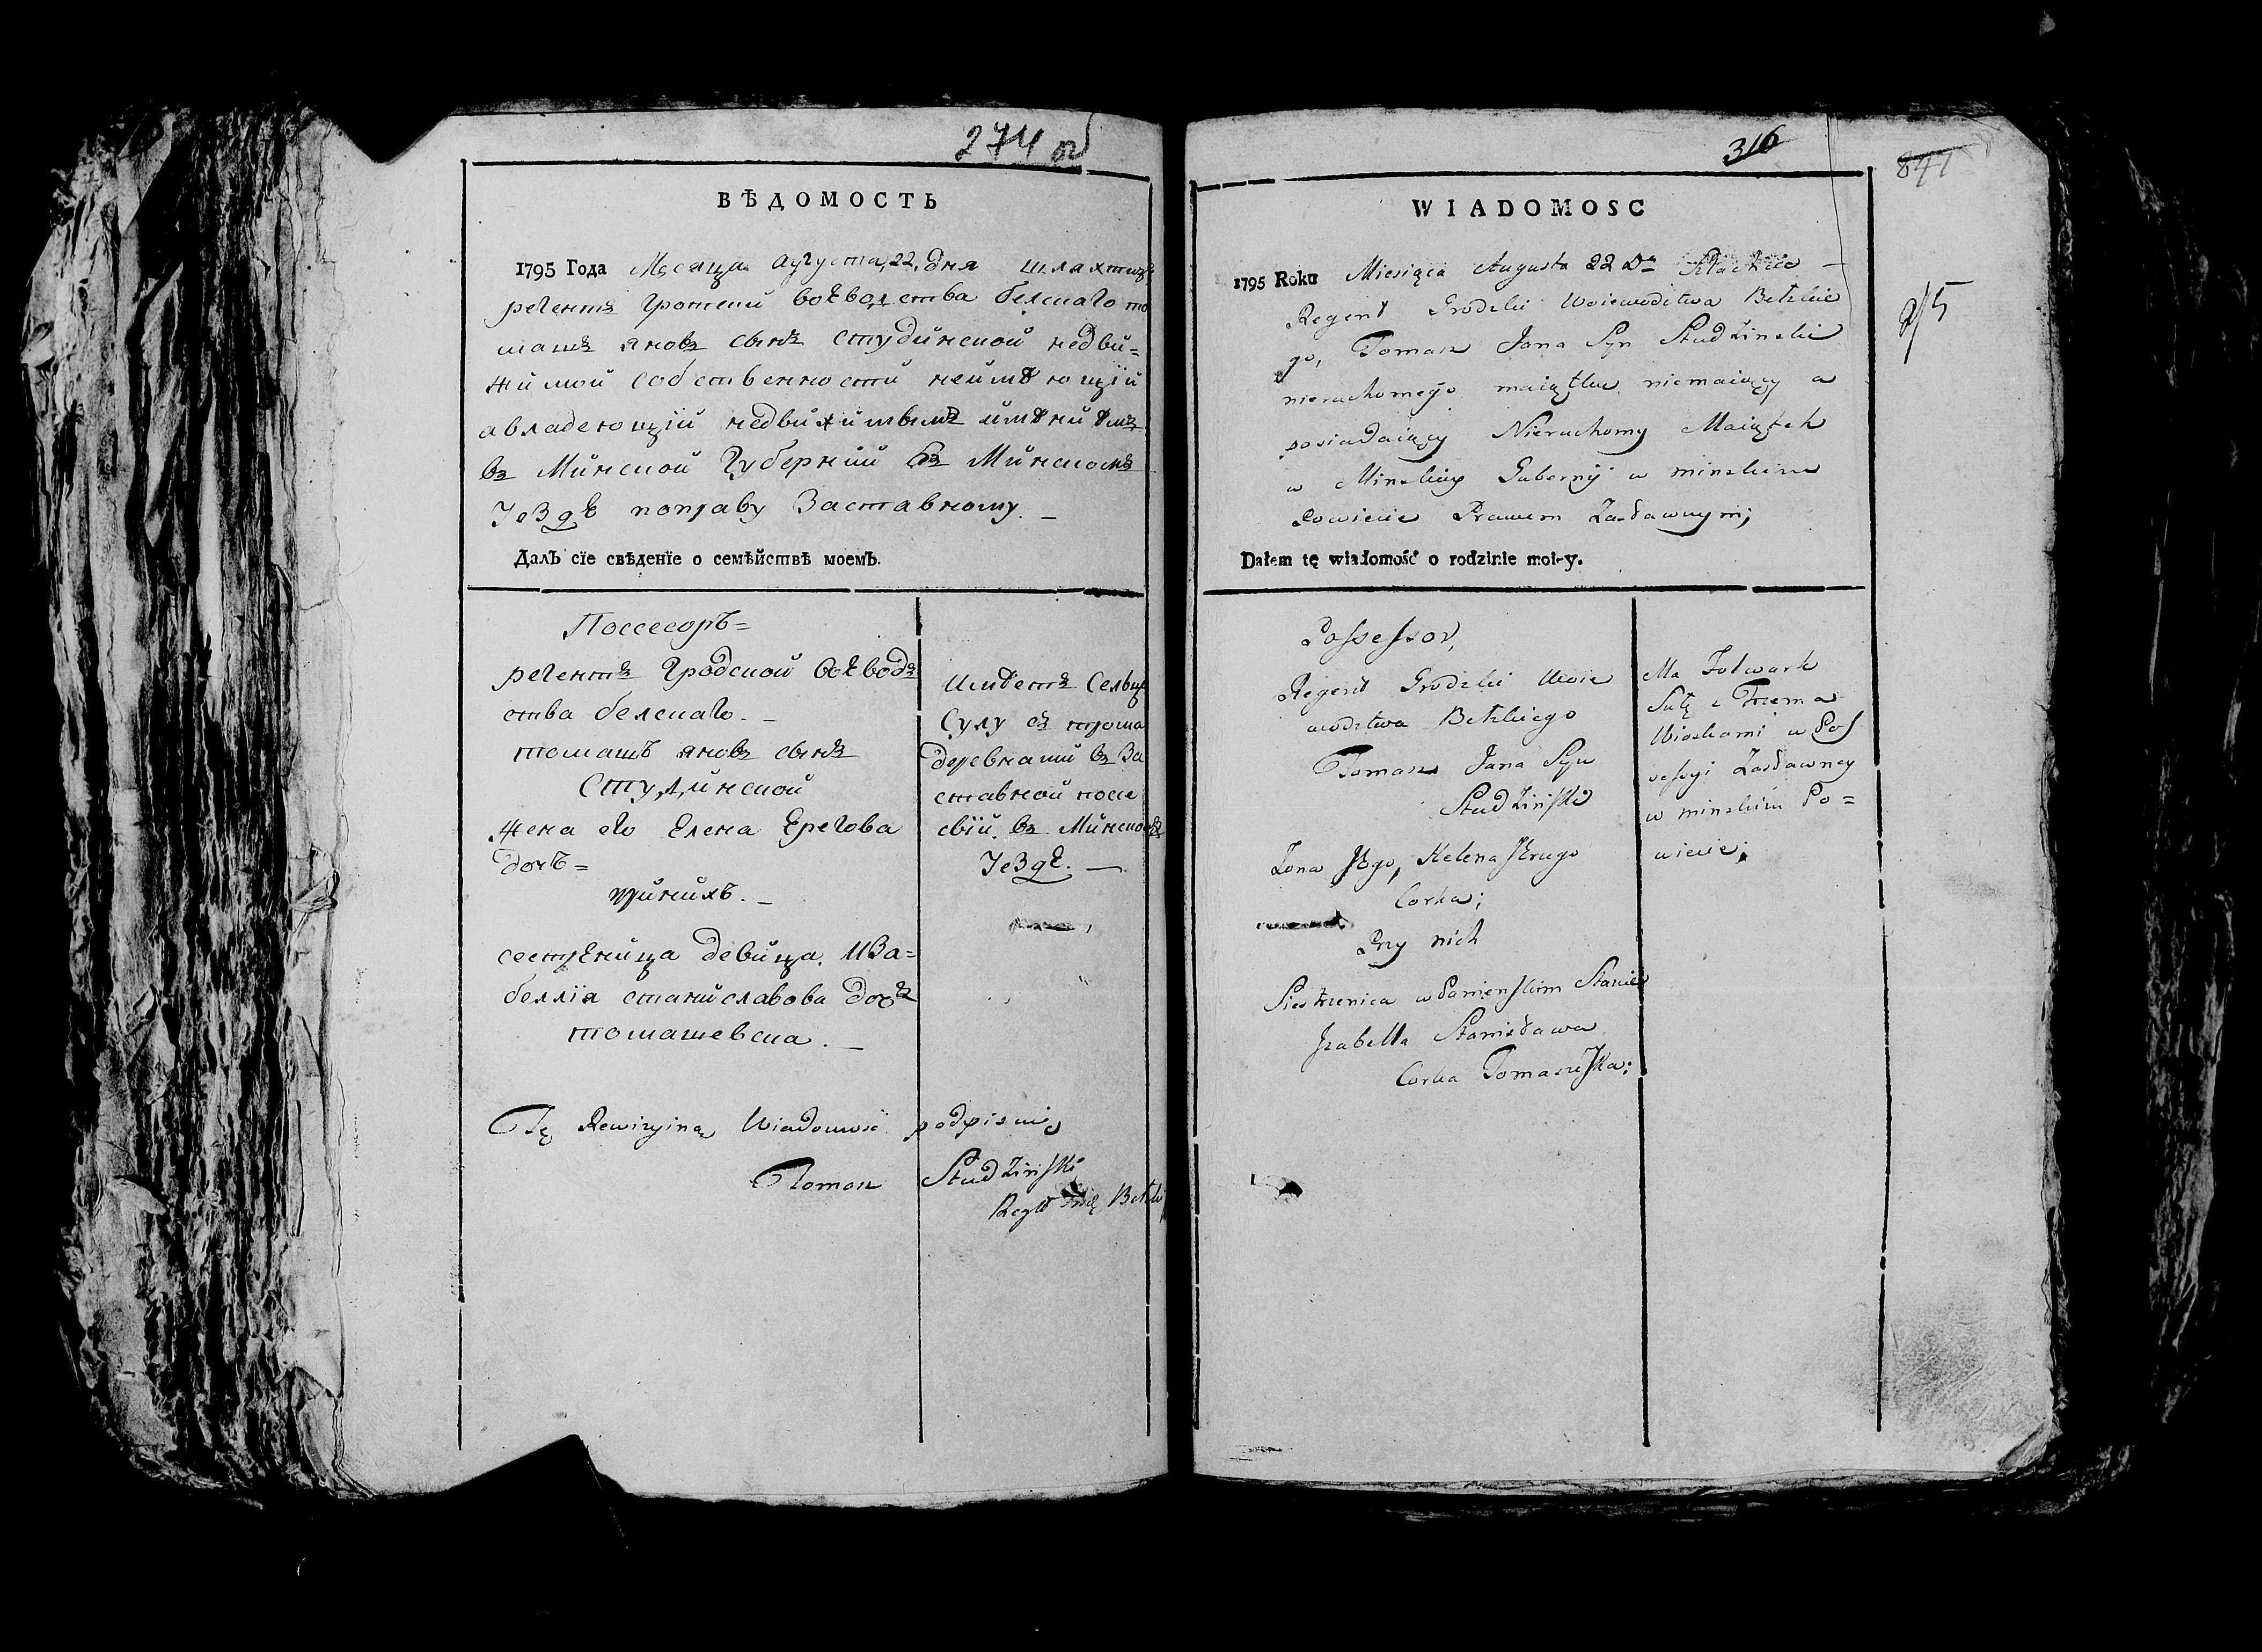 274 об
ВѢДОМОСТЬ
1795 Года Месяца августа, 22, дня шляхтичъ
регентъ гроцкий воеводства белскаго то
машъ яновъ сынъ студинской недви=
жимой собственности неимѣющїй
авладеющїй недвижимымъ имѣниѣмъ
въ Минской Губернии въ Минскомъ
Уездѣ поправу Заставному. _
ДалЪ сїе свѣденїе о семѣйствѣ моемЪ.
Поссесоръ=
регентъ Гродской воеводъ
ства белскаго. _
томашъ яновъ сынъ
Студинской
жена его Елена
дочъ=
принихъ. _
сестреница девица Иза=
беллїя станиславова дочъ
томашевска. _
имѣетъ Селцо
Сулу съ трома
деревнами въ За
ставной посе
сїи въ Минскомъ
Уездѣ. —
Tę Rewizyiną Wiadomość podpisuię
Tomasz Studziński
Regt Grdz Bełzki
316
847
WIADOMOSC
1795 Roku Miesiąca Augusta 22 Dn Szlachcic —
Regent Grodzki Woiewodztwa Bełzkie
go, Tomasz Jana Syn Studzinski
nieruchomego maiątku niemaiący a
posiadaiący Nieruchomy Maiątek
w Minskiey Gubernij w minskim
Powiecie Prawem Zastawnym;
Dałem tę wiadomość o rodzinie moiey.
Possessor,
Regent Grodzki Woie
wodztwa Bełzkiego
Tomasz Jana Syn
Studziński
Zona Jego, Helena
Corka;
Przy nich
Siestrzenica w Panienskim Stanie
Izabella Stanisława
Corka Tomaszewska;
Ma Folwark
Sułę z Trzema
Wioskami w Pos
sessyi Zastawney
w minskim Po=
wiecie;